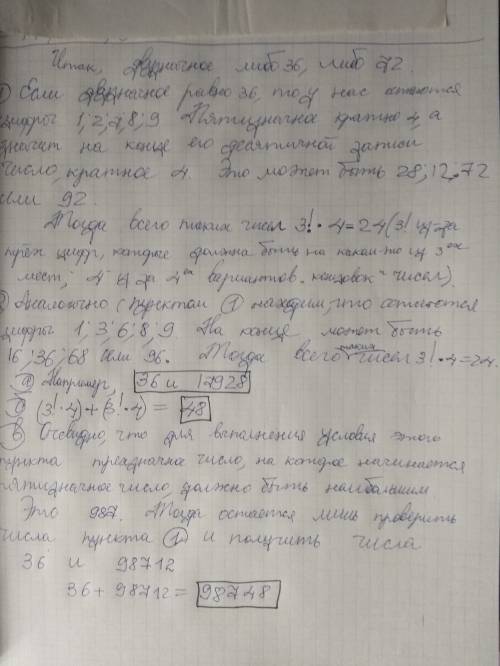 Итак, двузначное либо 36, либо 72.
① Если двузначное равно 36, то у нас остаются
цифры 1; 2; 7; 8; 9 Пятизначное кратно 4, а
значит на конце его десятичной записи
число, кратное 4. Это может быть 28; 12; 72
или 92.
Тогда всего таких чисел 3! · 4 = 24 (3! из-за
трёх цифр, каждые должна быть на каком-то из 3ёх
мест; 4 из-за 4ёх вариантов "концовок" чисел).
② Аналогично с пунктом ① находим, что остаются
цифры 1; 3; 6; 8; 9 На конце может быть
16; 36; 68 или 96. Тогда всего таких чисел 3! · 4 = 24.
а) Например, 36 и 17928
б) (3! · 4) + (3! · 4) = 48
в) Очевидно, что для выполнения условия этого
пункта трёхзначное число, на которое начинается
пятизначное число, должно быть наибольшим.
Это 987. Тогда остается лишь проверить
числа пункта ① и получить числа
36 и 98712
36 + 98712 = 98748